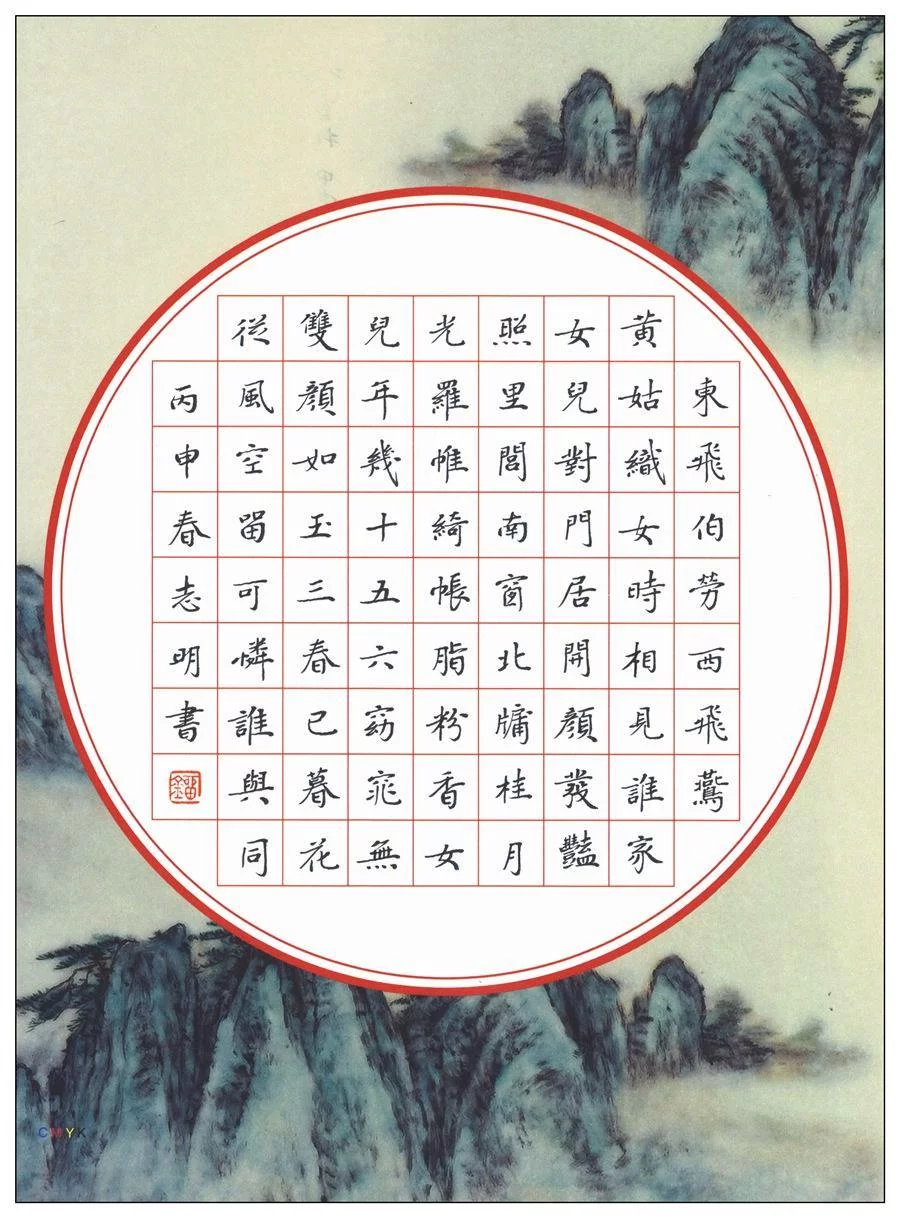 東飛伯勞西飛鷰
黄姑織女時相見誰家
女兒對門居開顔發豔
照里閭南窗北牖桂月
光羅帷綺帳脂粉香女
兒年幾十五六窈窕無
雙顔如玉三春已暮花
從風空留可憐誰與同
丙申春志明書
CMYK